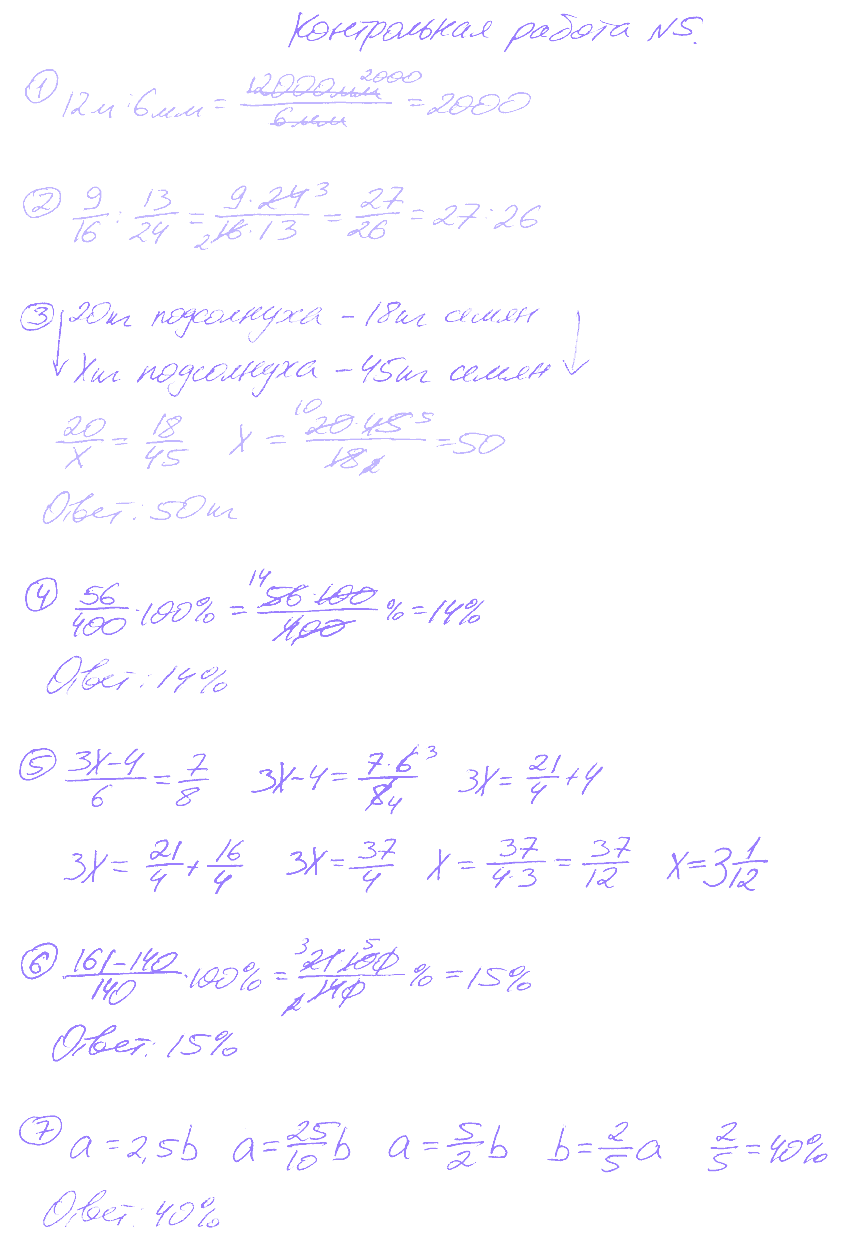 Контрольная работа №5.
① 12м : 6мм = 12000мм 2000 / 6мм = 2000
② 9/16 : 13/24 = 9·24 3 / 2 16·13 = 27/26 = 27:26
③ ↓ 20кг подсолнуха – 18кг семян ↓
Xкг подсолнуха – 45кг семян
20/X = 18/45 X = 10 20·45 5 / 18 2 = 50
Ответ: 50кг
④ 56/400 · 100% = 14 56·100 / 400 % = 14%
Ответ: 14%
⑤ 3X–4/6 = 7/8 3X–4 = 7·6 3 / 8 4 3X = 21/4 + 4
3X = 21/4 + 16/4 3X = 37/4 X = 37/4·3 = 37/12 X = 3 1/12
⑥ 161–140/140 · 100% = 3 21·100 5 / 2 140 % = 15%
Ответ: 15%
⑦ a = 2,5b a = 25/10 b a = 5/2 b b = 2/5 a 2/5 = 40%
Ответ: 40%